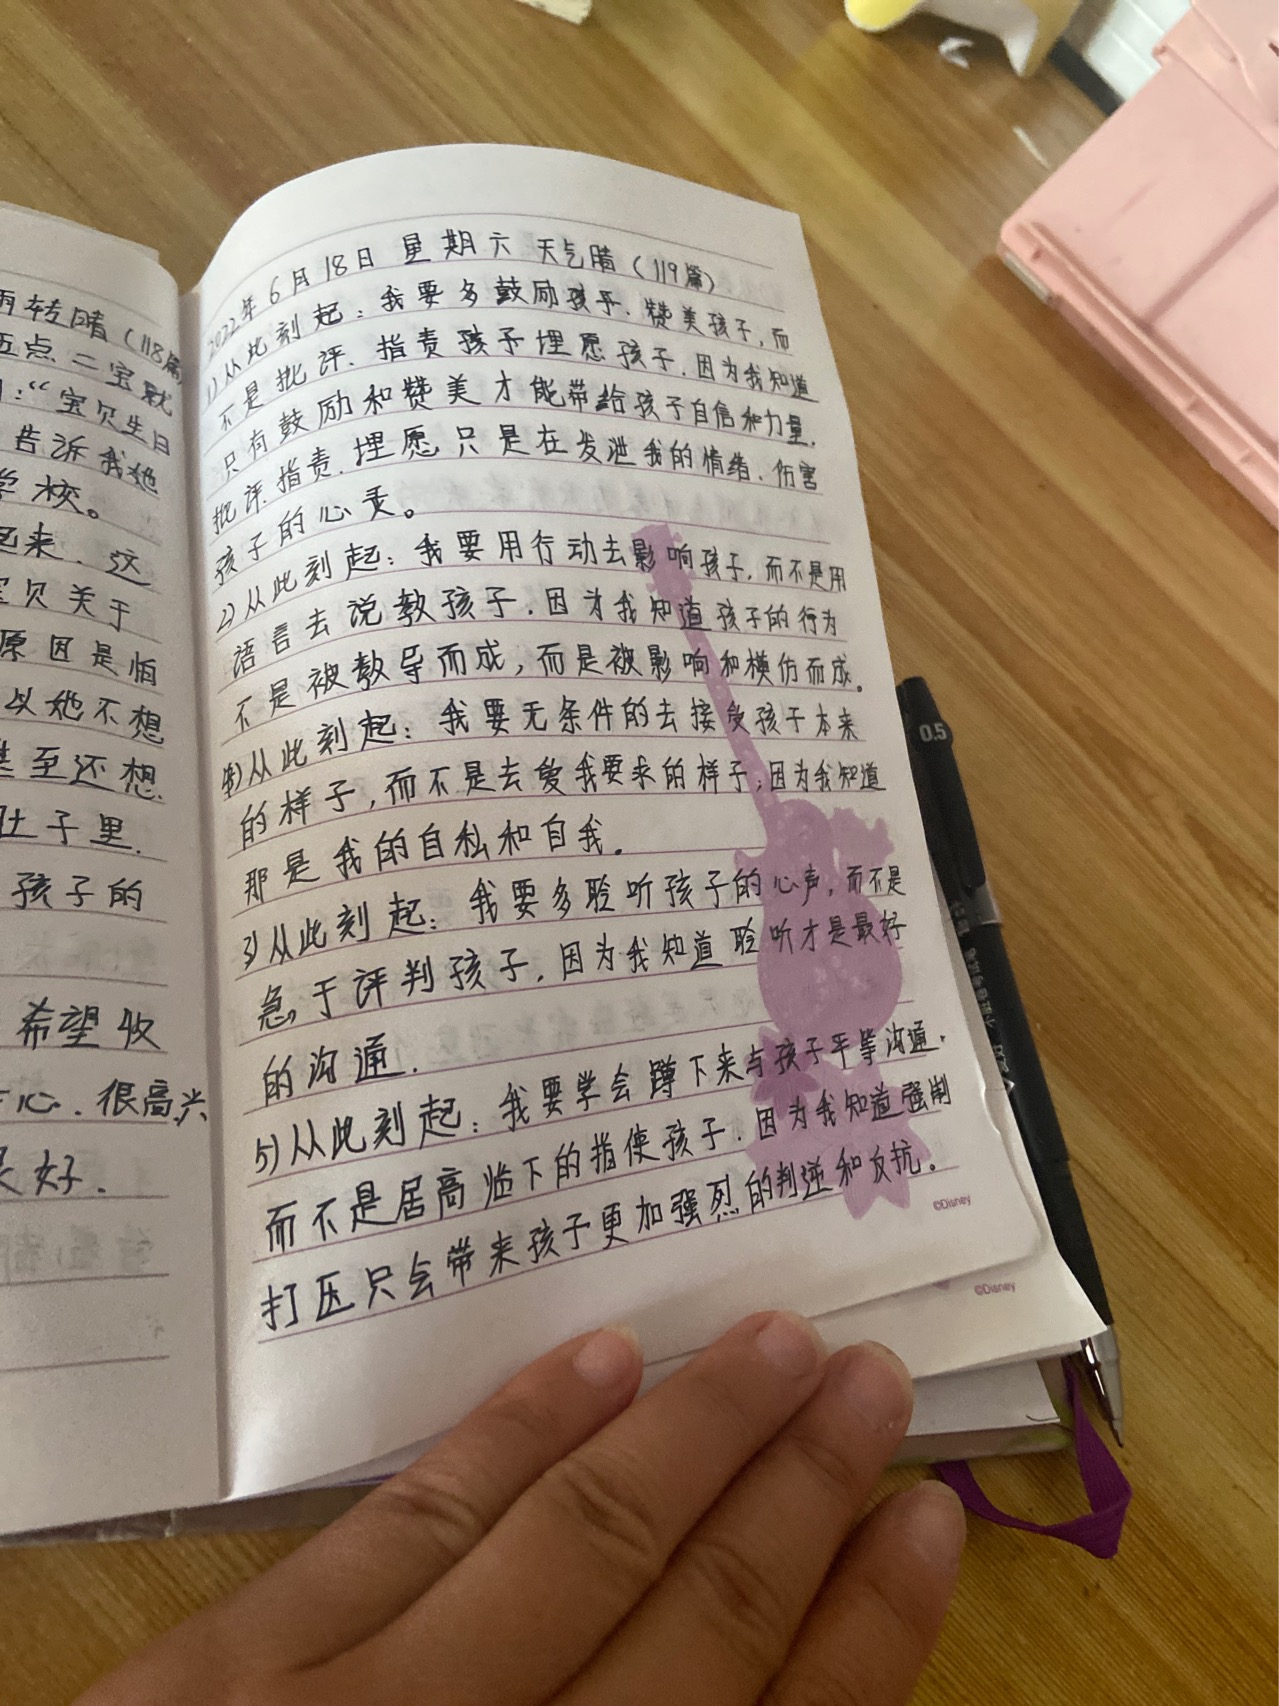 雨转晴（118篇）
五点二宝就
：“宝贝生日
告诉我她
学校。
起来．这
宝贝关于
原因是怕
以她不想
甚至还想
肚子里．
孩子的
希望收
心．很高兴
好．
2022年6月18日 星期六 天气晴（119篇）
1)从此刻起：我要多鼓励孩子．赞美孩子，而
不是批评．指责孩子埋愿孩子．因为我知道
只有鼓励和赞美才能带给孩子自信和力量．
批评．指责．埋愿只是在发泄我的情绪．伤害
孩子的心灵。
2)从此刻起：我要用行动去影响孩子．而不是用
语言去说教孩子．因为我知道孩子的行为
不是被教导而成，而是被影响和模仿而成。
4)从此刻起：我要无条件的去接受孩子本来
的样子，而不是去爱我要求的样子；因为我知道
那是我的自私和自我．
3)从此刻起：我要多聆听孩子的心声，而不是
急于评判孩子．因为我知道聆听才是最好
的沟通．
5)从此刻起：我要学会蹲下来与孩子平等沟通．
而不是居高临下的指使孩子．因为我知道强制
打压只会带来孩子更加强烈的判逆和反抗．
©Disney
©Disney
0.5